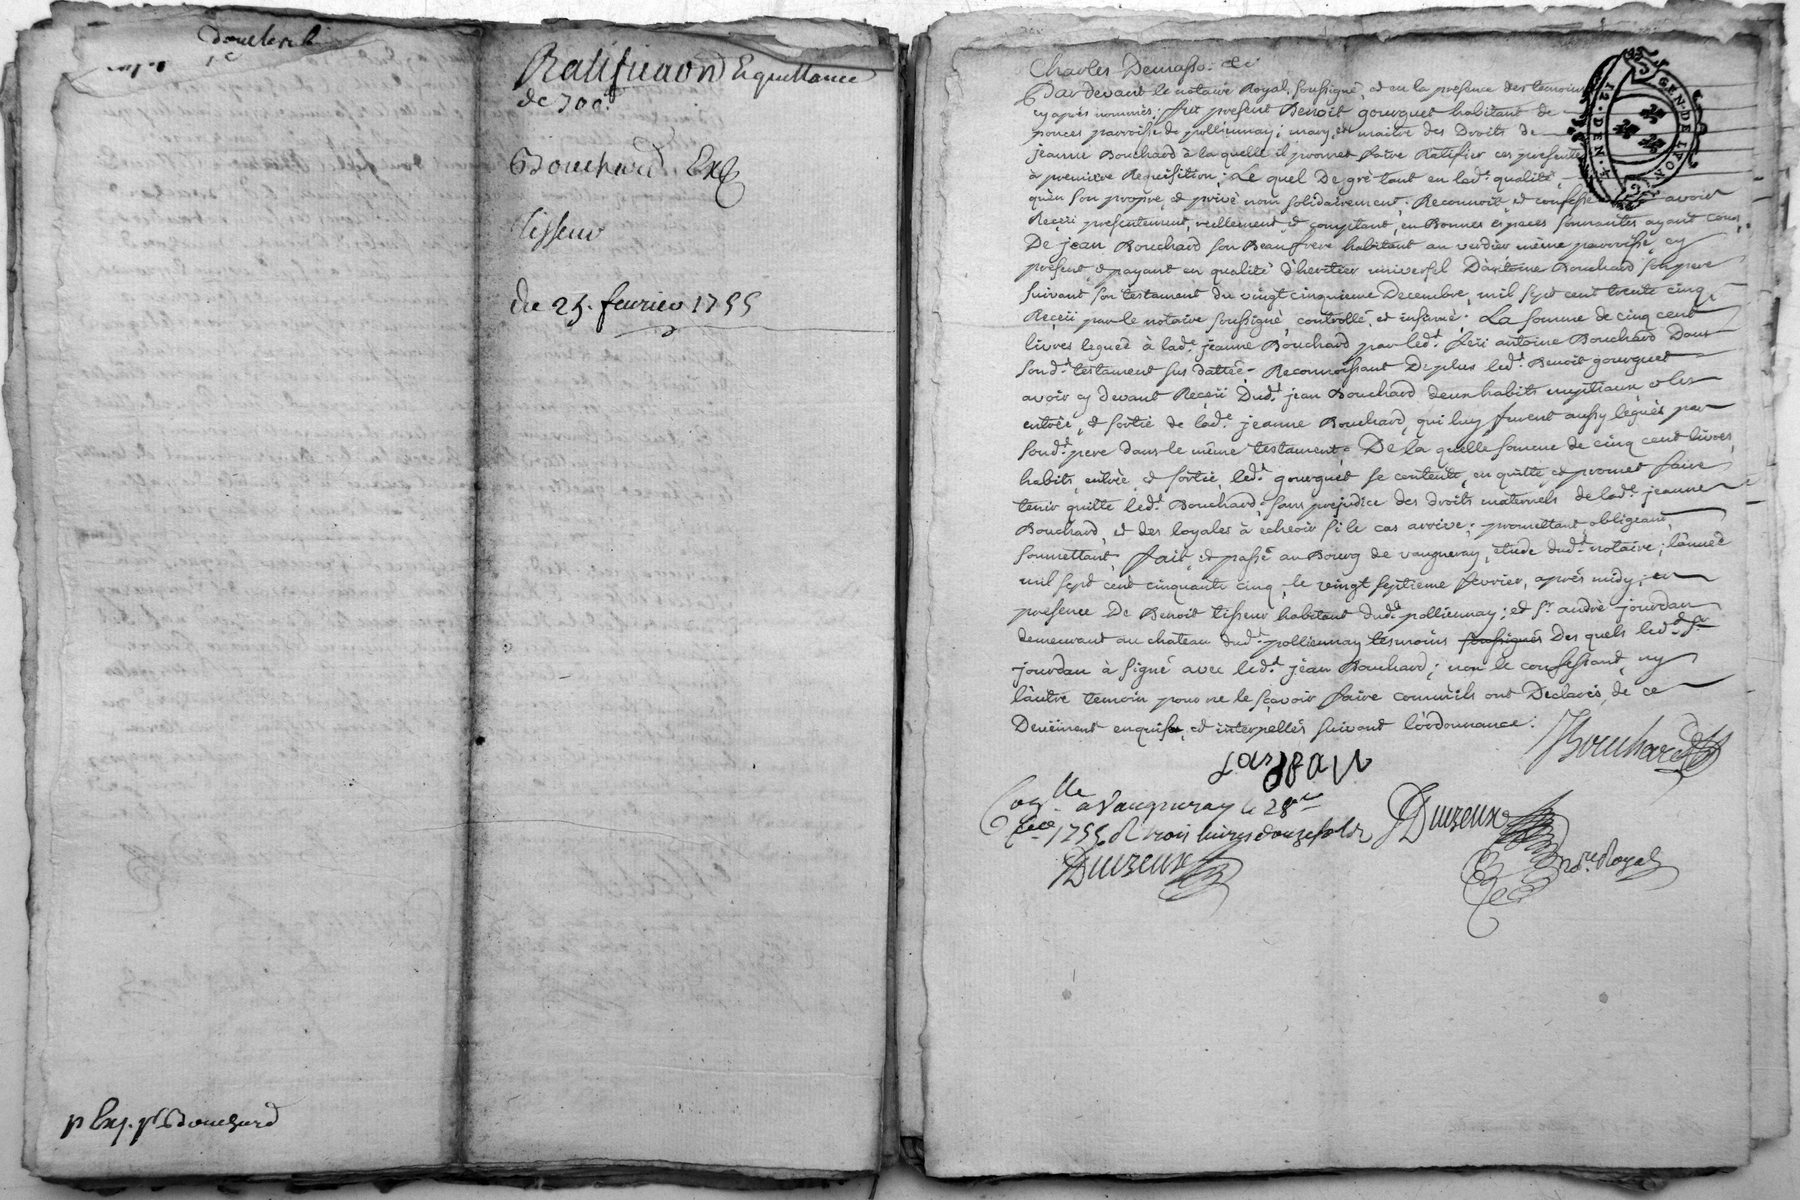 Ratification Et quittance
de 500lt
Bouchard Et
tisseur
du 25. fevrier 1755
p Bouchard
Charles Demasso
GEN. DE LYON
12. DEN. 4
Pardevant le notaire Royal, soussigné, et en la présence des temoins
cy après nommés; fut present Benoit gourguet habitant de
ponces parroisse de polliennay; mary, et maitre des Droits de
jeanne Bouchard à la quelle il promet faire Ratifier ces presentes
à premiere Requisition; Le quel De gré tant en led.t qualité,
qu'en son propre et privé nom solidairement; Reconnoit, et confesse avoir
Reçeü presentement, reellement, et comptant, en Bonnes especes sonnantes ayant cours,
De jean Bouchard son Beaufrere habitant au verdier même parroisse, cy
present, et payant en qualité d'heritier universel D'antoine Bouchard son pere
suivant son testament du vingt cinquieme Decembre, mil sept cent trente cinq,
Reçeü par le notaire soussigné, controllé, et insinué; La somme de cinq cent
livres leguée à lad.e jeanne Bouchard par led.t feü antoine Bouchard Dans
sond.t testament sus dattée; Reconnoissant Deplus led.t Benoit gourguet
avoir cy devant Reçeü Dud.t jean Bouchard deux habits nuptiaux, et les
entrée, et sortie de lad.e jeanne Bouchard, qui luy furent aussy legués par
sond.t pere dans le même testament; De la quelle somme de cinq cent livres,
habits, entrée, et sortie, led.t gourguet se contente, en quitte, et promet faire
tenir quitte led.t Bouchard, sans prejudice des droits maternels de lad.e jeanne
Bouchard, et des loyales à echeoir si le cas arrive; promettant, obligeant,
soumettant, fait, et passé au Bourg de vaugneray, etude dud.t notaire; l'année
mil sept cent cinquante cinq, le vingt septieme fevrier, après midy; en
presence De Benoit tisseur habitant dud.t polliennay; et S.r andré jourdan
demeurant au chateau dud.t polliennay temoins soussignés Des quels led.t S.r
jourdan à signé avec led.t jean Bouchard; non le confessant, ny
l'autre temoin pour ne le sçavoir faire comm'ils ont Declarés, de ce
Deüement enquis, et interpellés suivant l'ordonnance:
J Bouchard
jordan
Con.lle a Vaugneray le 28.me
1755. R trois livres douze sols
Duizeux
Duizeux
no.re Royal